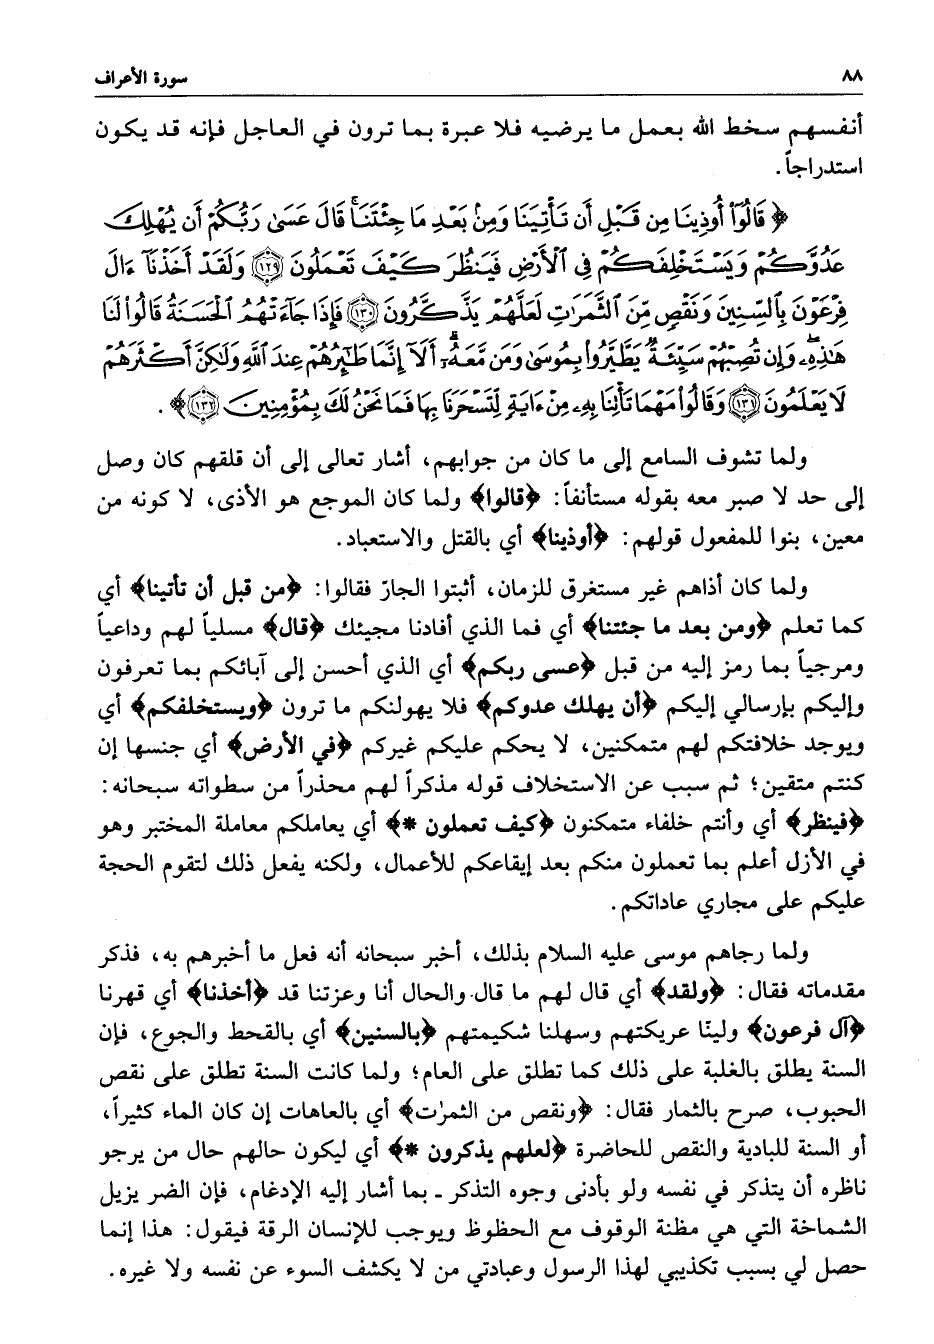 ٨٨ سورة الأعراف
أنفسهم سخط الله بعمل ما يرضيه فلا عبرة بما ترون في العاجل فإنه قد يكون
استدراجاً.
﴿ قَالُوٓا۟ أُوذِينَا مِن قَبْلِ أَن تَأْتِيَنَا وَمِنۢ بَعْدِ مَا جِئْتَنَا ۚ قَالَ عَسَىٰ رَبُّكُمْ أَن يُهْلِكَ
عَدُوَّكُمْ وَيَسْتَخْلِفَكُمْ فِى ٱلْأَرْضِ فَيَنظُرَ كَيْفَ تَعْمَلُونَ ١٢٩ وَلَقَدْ أَخَذْنَآ ءَالَ
فِرْعَوْنَ بِٱلسِّنِينَ وَنَقْصٍ مِّنَ ٱلثَّمَرَٰتِ لَعَلَّهُمْ يَذَّكَّرُونَ ١٣٠ فَإِذَا جَآءَتْهُمُ ٱلْحَسَنَةُ قَالُوا۟ لَنَا
هَٰذِهِۦ ۖ وَإِن تُصِبْهُمْ سَيِّئَةٌ يَطَّيَّرُوا۟ بِمُوسَىٰ وَمَن مَّعَهُۥٓ ۗ أَلَآ إِنَّمَا طَٰٓئِرُهُمْ عِندَ ٱللَّهِ وَلَٰكِنَّ أَكْثَرَهُمْ
لَا يَعْلَمُونَ ١٣١ وَقَالُوا۟ مَهْمَا تَأْتِنَا بِهِۦ مِنْ ءَايَةٍ لِّتَسْحَرَنَا بِهَا فَمَا نَحْنُ لَكَ بِمُؤْمِنِينَ ١٣٢﴾ .
ولما تشوف السامع إلى ما كان من جوابهم، أشار تعالى إلى أن قلقهم كان وصل
إلى حد لا صبر معه بقوله مستأنفاً: ﴿قالوا﴾ ولما كان الموجع هو الأذى، لا كونه من
معين، بنوا للمفعول قولهم: ﴿أوذينا﴾ أي بالقتل والاستعباد.
ولما كان أذاهم غير مستغرق للزمان، أثبتوا الجارّ فقالوا: ﴿من قبل أن تأتينا﴾ أي
كما تعلم ﴿ومن بعد ما جئتنا﴾ أي فما الذي أفادنا مجيئك ﴿قال﴾ مسلياً لهم وداعياً
ومرجياً بما رمز إليه من قبل ﴿عسى ربكم﴾ أي الذي أحسن إلى آبائكم بما تعرفون
وإليكم بإرسالي إليكم ﴿أن يهلك عدوكم﴾ فلا يهولنكم ما ترون ﴿ويستخلفكم﴾ أي
ويوجد خلافتكم لهم متمكنين، لا يحكم عليكم غيركم ﴿في الأرض﴾ أي جنسها إن
كنتم متقين؛ ثم سبب عن الاستخلاف قوله مذكراً لهم محذراً من سطواته سبحانه:
﴿فينظر﴾ أي وأنتم خلفاء متمكنون ﴿كيف تعملون *﴾ أي يعاملكم معاملة المختبر وهو
في الأزل أعلم بما تعملون منكم بعد إيقاعكم للأعمال، ولكنه يفعل ذلك لتقوم الحجة
عليكم على مجاري عاداتكم.
ولما رجاهم موسى عليه السلام بذلك، أخبر سبحانه أنه فعل ما أخبرهم به، فذكر
مقدماته فقال: ﴿ولقد﴾ أي قال لهم ما قال والحال أنا وعزتنا قد ﴿أخذنا﴾ أي قهرنا
﴿آل فرعون﴾ ولينّا عريكتهم وسهلنا شكيمتهم ﴿بالسنين﴾ أي بالقحط والجوع، فإن
السنة يطلق بالغلبة على ذلك كما تطلق على العام؛ ولما كانت السنة تطلق على نقص
الحبوب، صرح بالثمار فقال: ﴿ونقص من الثمرٰت﴾ أي بالعاهات إن كان الماء كثيراً،
أو السنة للبادية والنقص للحاضرة ﴿لعلهم يذكرون *﴾ أي ليكون حالهم حال من يرجو
ناظره أن يتذكر في نفسه ولو بأدنى وجوه التذكر ـ بما أشار إليه الإدغام، فإن الضر يزيل
الشماخة التي هي مظنة الوقوف مع الحظوظ ويوجب للإنسان الرقة فيقول: هذا إنما
حصل لي بسبب تكذيبي لهذا الرسول وعبادتي من لا يكشف السوء عن نفسه ولا غيره.